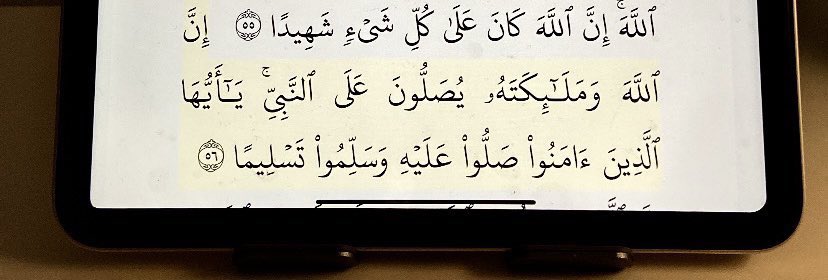 ٱللَّهَۚ إِنَّ ٱللَّهَ كَانَ عَلَىٰ كُلِّ شَىۡءٖ شَهِيدًا ٥٥ إِنَّ
ٱللَّهَ وَمَلَـٰٓئِكَتَهُۥ يُصَلُّونَ عَلَى ٱلنَّبِىِّۚ يَـٰٓأَيُّهَا
ٱلَّذِينَ ءَامَنُواْ صَلُّواْ عَلَيۡهِ وَسَلِّمُواْ تَسۡلِيمًا ٥٦